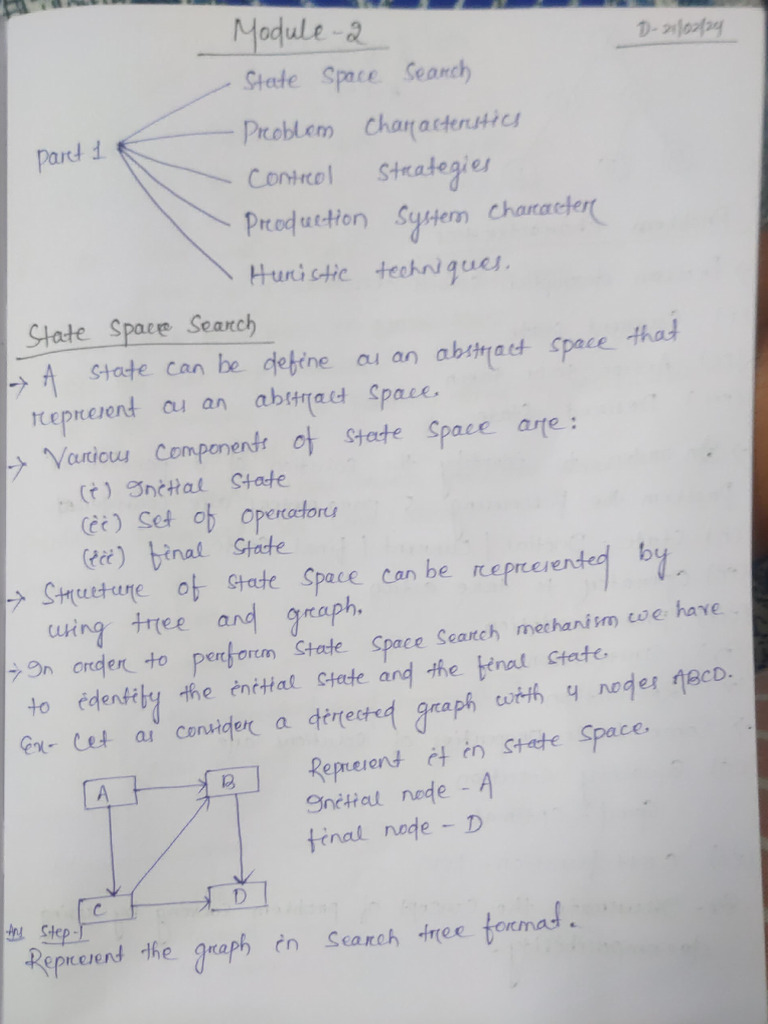 Module-2
D-21/02/24
Part 1
State Space Search
Problem Characteristics
Control Strategies
Production System Character
Huristic techniques.
State Space Search
→ A state can be define as an abstract space that
represent as an abstract space.
→ Various Components of State Space are:
(i) Initial State
(ii) Set of operators
(iii) final State
→ Structure of State Space can be represented by
using tree and graph.
→ In order to perform State Space Search mechanism we have
to identify the initial state and the final state.
Ex- Let as consider a directed graph with 4 nodes ABCD.
Represent it in State Space.
Initial node - A
final node - D
A
B
C
D
Ans Step-1
Represent the graph in Search tree format.